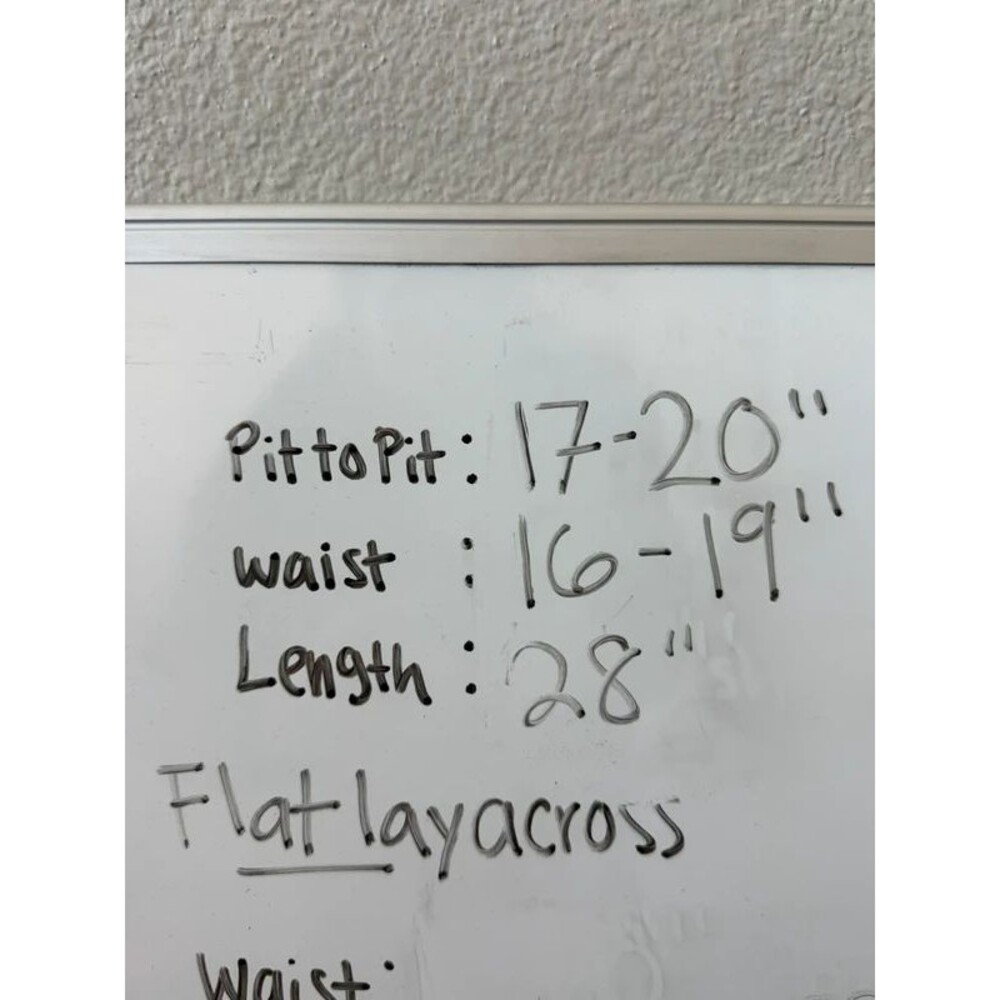 Pit to Pit: 17-20"
waist : 16-19"
Length : 28"
Flat lay across
Waist: